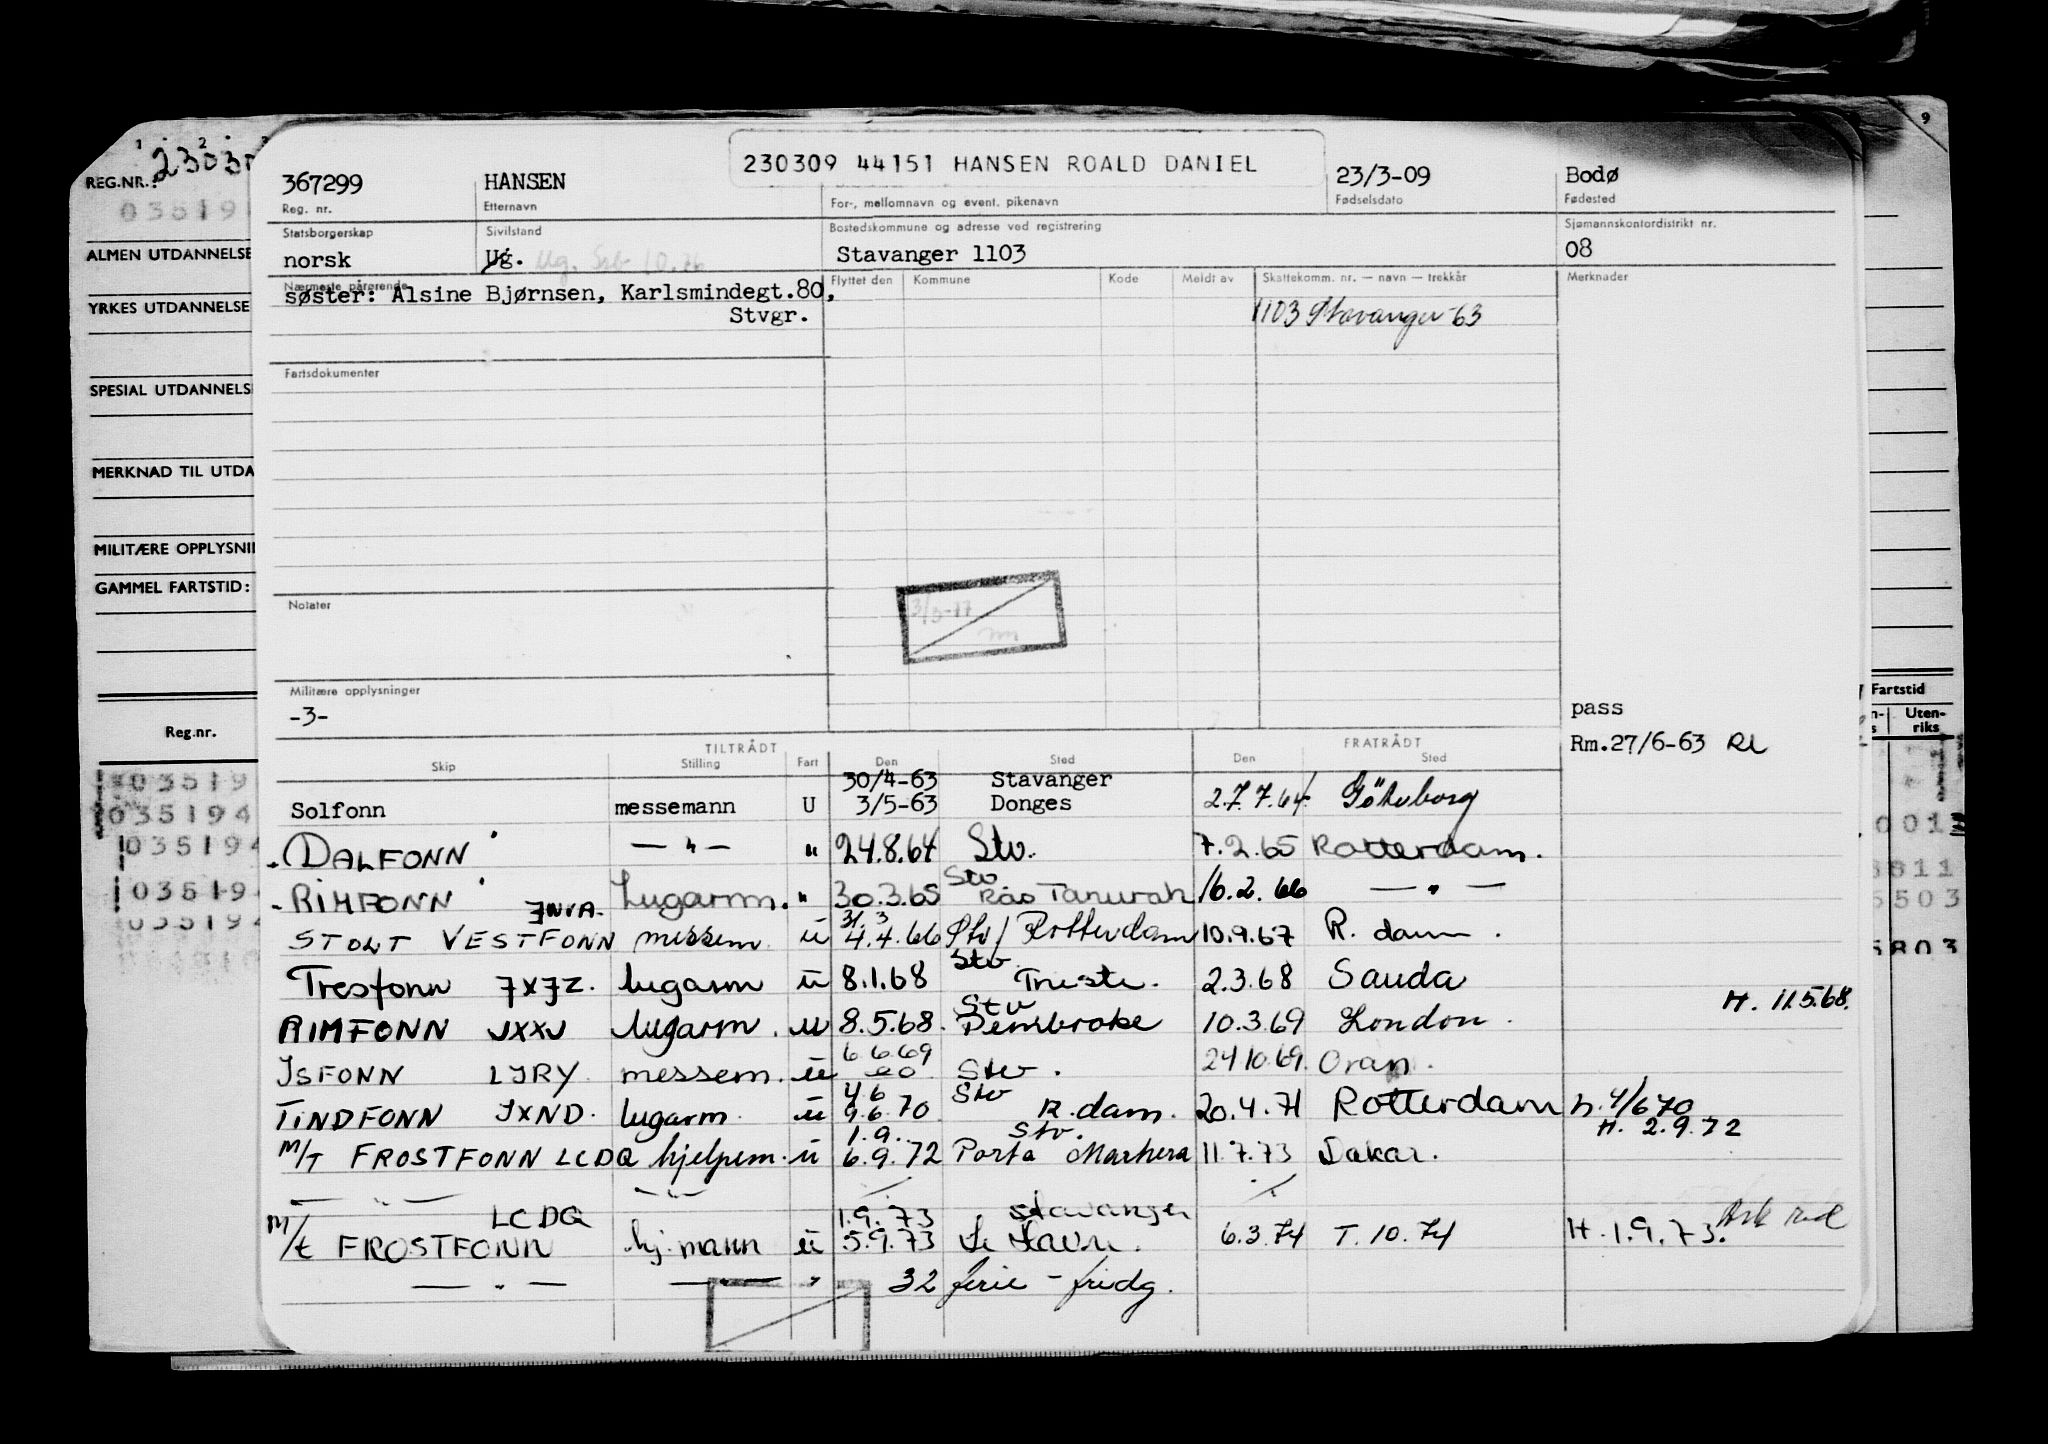 230309 44151 HANSEN ROALD DANIEL
367299 HANSEN 23/3-09 Bodø
Reg. nr. Etternavn For-, mellomnavn og event. pikenavn Fødselsdato Fødested
Statsborgerskap Sivilstand Bostedskommune og adresse ved registrering Sjømannskontordistrikt nr.
norsk Ug. Stavanger 1103 08
Nærmeste pårørende Flyttet den Kommune Kode Meldt av Skattekomm. nr. — navn — trekkår Merknader
søster: Alsine Bjørnsen, Karlsmindegt.80,
Stvgr. 1103 Stavanger -63
Fartsdokumenter
Notater
Militære opplysninger
-3- pass
Rm.27/6-63
TILTRÅDT FRATRÅDT
Skip Stilling Fart Den Sted Den Sted
30/4-63 Stavanger
Solfonn messemann U 3/5-63 Donges 27.7.64 Göteborg
DALFONN — " — " 24.8.64 Stv. 7.2.65 Rotterdam.
Stv
RIMFONN Lugarm. " 30.3.65 Ras Tanurah 16.2.66 — " —
JNVA. 31.3
STOLT VESTFONN messem u 4.4.66 Stv/ Rotterdam 10.9.67 R. dam.
Stv
Tresfonn JXJZ. lugarm u 8.1.68 Trieste. 2.3.68 Sauda
Stv H. 11.5.68.
RIMFONN JXXJ lugarm. u 8.5.68. Pembroke 10.3.69 London.
6.6.69
ISFONN LJRY messem. u Stv. 24 10.69. Oran.
4.6 Stv
TINDFONN JXND. lugarm. u 9.6.70 R.dam. 20.4.71 Rotterdam h. 4/6 70
1.9. Stv. H. 2.9.72
M/T FROSTFONN LCDQ hjelpem. u 6.9.72 Porto Marhera 11.7.73 Dakar.
— " — — " —
LCDQ 1.9.73 Stavanger
M/t FROSTFONN hj.mann u 5.9.73 Le Havre. 6.3.74 T.10.74 H. 1.9.73.
— " — — " — " 32 ferie - fridg.
REG.NR.:
ALMEN UTDANNELSE
YRKES UTDANNELSE
SPESIAL UTDANNELS
MERKNAD TIL UTDA
MILITÆRE OPPLYSNI
GAMMEL FARTSTID:
Reg.nr.
035194
035194
035194
Fartstid
Uten-
riks